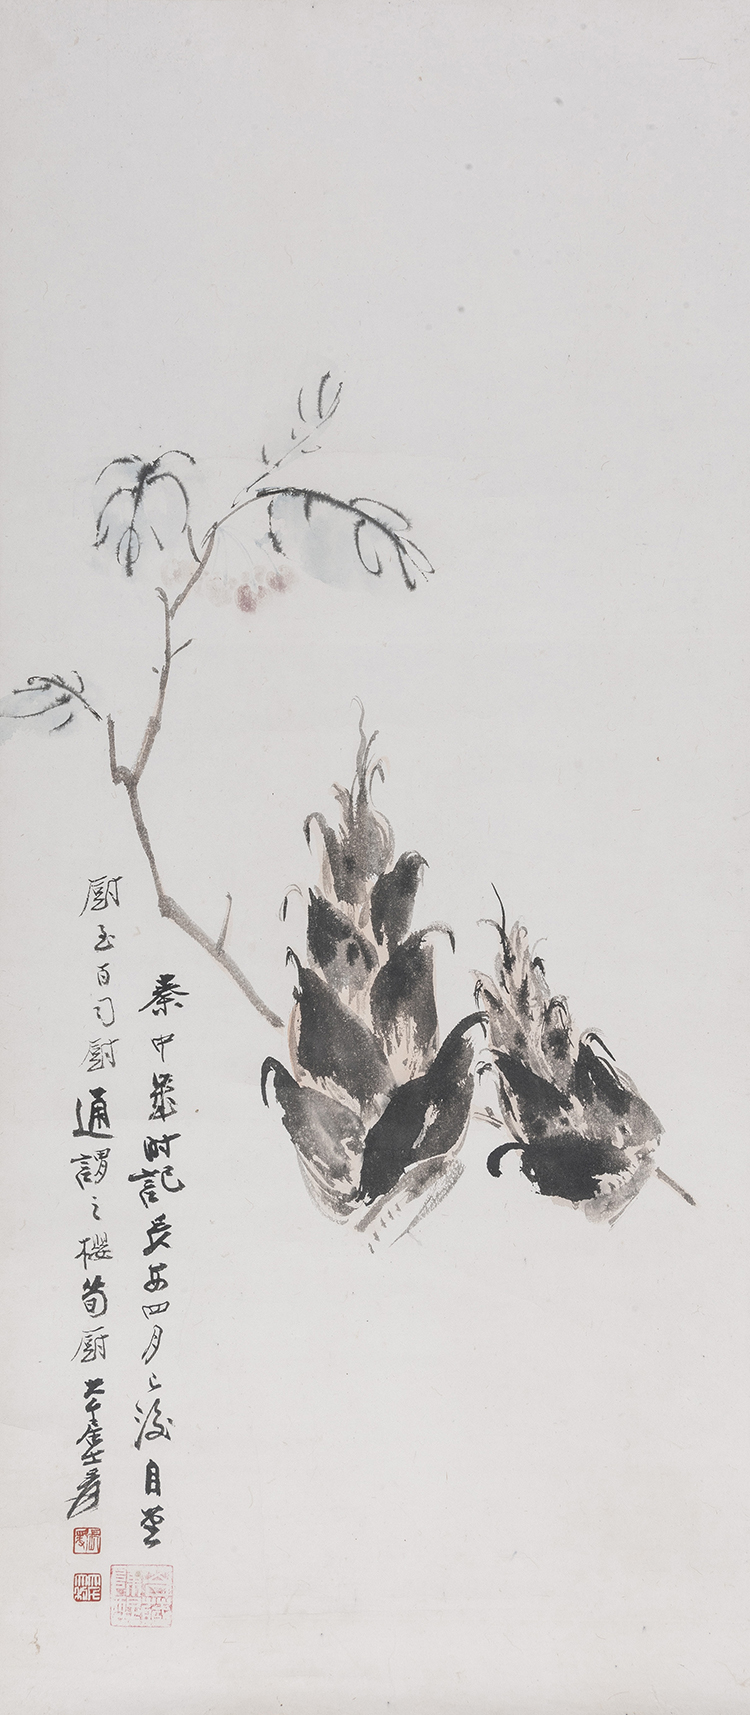 秦中歲時記長安四月已後自堂
厨至百司厨通謂之櫻筍厨大千居士爰